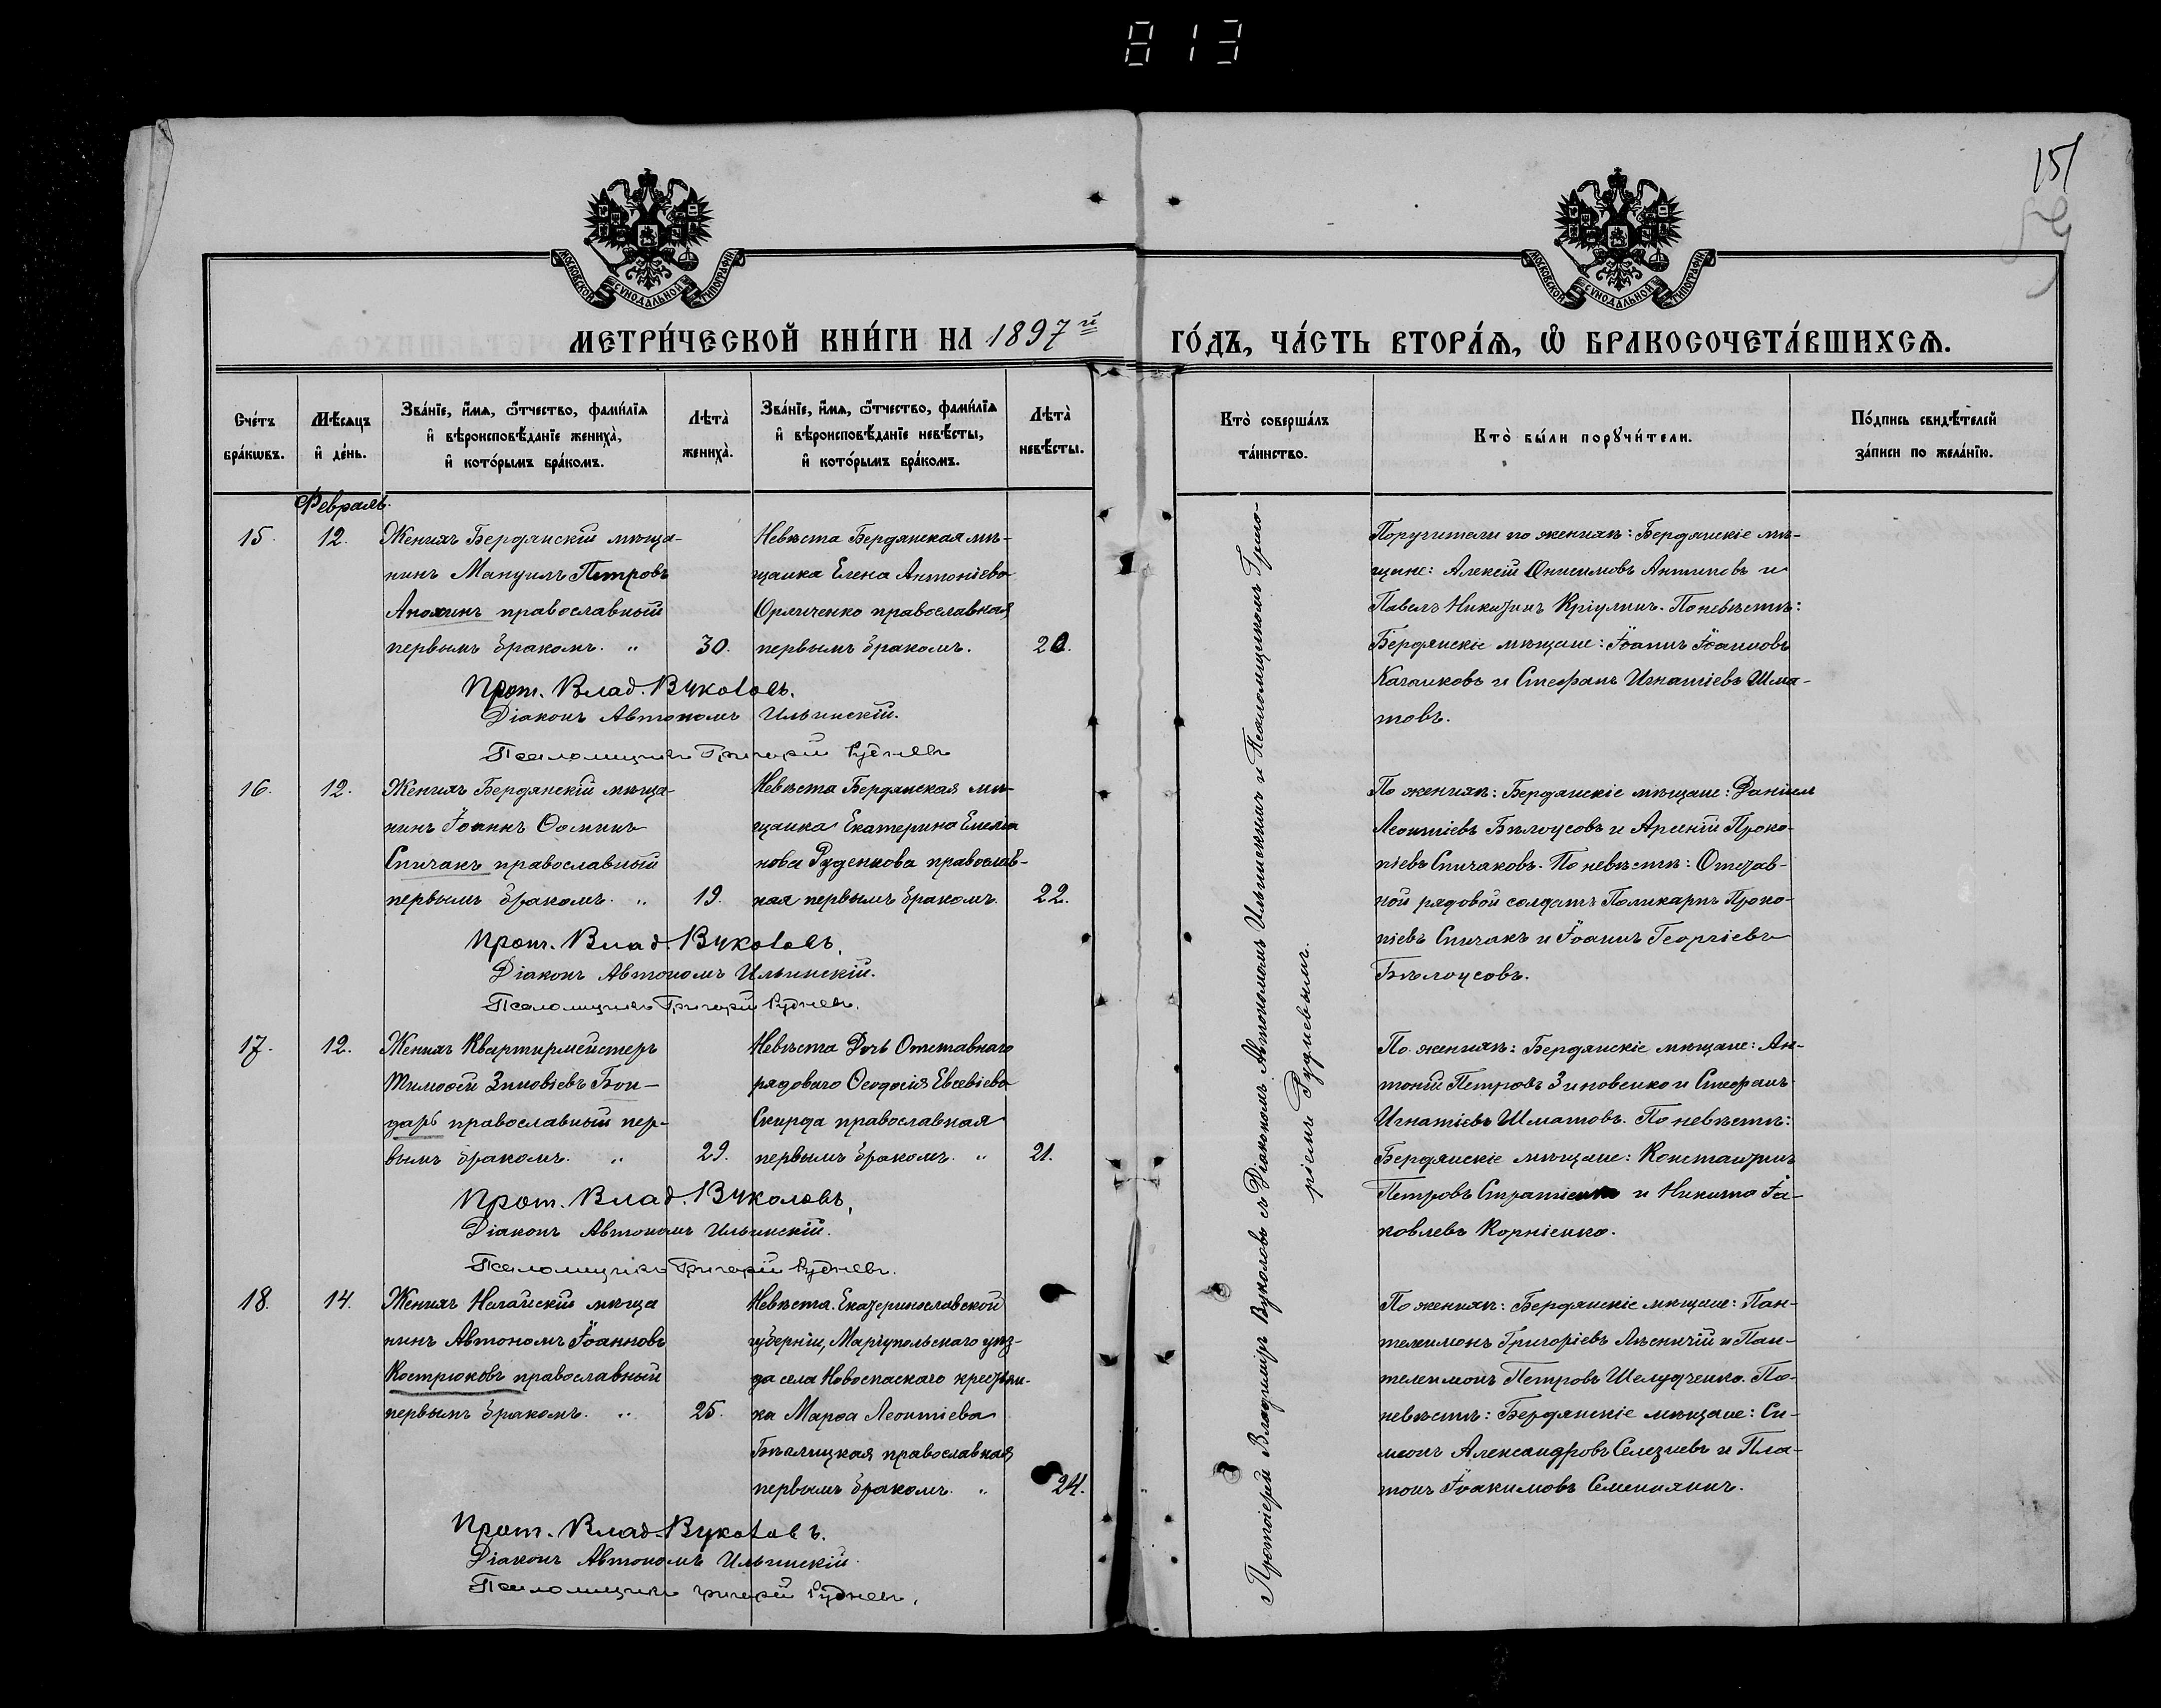 813
151
59
МОСКОВСКОЙ СѴНОДАЛЬНОЙ ТИПОГРАФІИ
МОСКОВСКОЙ СѴНОДАЛЬНОЙ ТИПОГРАФІИ
МЕТРИ́ЧЕСКОЙ КНИ́ГИ НА 1897й ГО́ДЪ, ЧА́СТЬ ВТОРА́Ѧ, Ѽ БРАКОСОЧЕТА́ВШИХСѦ.
Сче́тъ бра́кѡвъ.
Мѣ́сяцъ и҆ де́нь.
Зва́нїе, и҆́мѧ, ѻ҆́тчество, фами́лїѧ
и҆ вѣроисповѣ́данїе жениха̀,
и҆ кото́рымъ бра́комъ.
Лѣта̀ жениха̀.
Зва́нїе, и҆́мѧ, ѻ҆́тчество, фами́лїѧ
и҆ вѣроисповѣ́данїе невѣ́сты,
и҆ кото́рымъ бра́комъ.
Лѣта̀ невѣ́сты.
Кто̀ соверша́лъ та́инство.
Кто̀ бы́ли порꙋчи́тели.
По́дпись свидѣ́телей за́писи по жела́нїю.
Февраль.
15. 12.
Женихъ Бердянскій мѣща-
нинъ Мануилъ Петровъ
Анохинъ православный
первымъ бракомъ. " 30.
Невѣста Бердянская мѣ-
щанка Елена Антоніева
Орличенко православная
первымъ бракомъ. 20.
Поручители по женихѣ: Бердянскіе мѣ-
щане: Алексій Онисимовъ Антиповъ и
Павелъ Никитинъ Кріулинъ. По невѣстѣ:
Бердянскіе мѣщане: Іоаннъ Іоанновъ
Качанковъ и Стефанъ Игнатіевъ Шма-
товъ.
Прот. Влад. Вуколовъ.
Діаконъ Автономъ Ильинскій.
Псаломщикъ Григорій Рудневъ
16. 12.
Женихъ Бердянскій мѣща-
нинъ Іоаннъ Ѳоминъ
Спичакъ православный
первымъ бракомъ. " 19.
Невѣста Бердянская мѣ-
щанка Екатерина Емелья
нова Руденкова православ-
ная первымъ бракомъ. 22.
По женихѣ: Бердянскіе мѣщане: Даніилъ
Леонтіевъ Бѣлоусовъ и Арсеній Проко-
піевъ Спичаковъ. По невѣстѣ: Отстав-
ной рядовой солдатъ Поликарпъ Проко-
піевъ Спичакъ и Іоаннъ Георгіевъ
Бѣлоусовъ.
Прот. Влад. Вуколовъ.
Діаконъ Автономъ Ильинскій.
Псаломщикъ Григорій Рудневъ.
17. 12.
Женихъ Квартирмейстеръ
Тимоѳей Зиновіевъ Бон-
дарь православный пер-
вымъ бракомъ. " 29.
Невѣста Дочь Отставнаго
рядоваго Ѳеодосія Евсевіева
Скирда православная
первымъ бракомъ. " 21.
По женихѣ: Бердянскіе мѣщане: Ан-
тоній Петровъ Зиновенко и Стефанъ
Игнатіевъ Шматовъ. По невѣстѣ:
Бердянскіе мѣщане: Константинъ
Петровъ и Никита Іа-
ковлевъ Корніенко.
Прот. Влад. Вуколовъ,
Діаконъ Автономъ Ильинскій.
Псаломщикъ Григорій Рудневъ.
18. 14.
Женихъ Ногайскій мѣща
нинъ Автономъ Іоанновъ
Костюковъ православный
первымъ бракомъ. " 25.
Невѣста. Екатеринославской
губерніи, Маріупольскаго уѣз-
да села Новоспаскаго крестьян-
ка Марѳа Леонтіева
Бѣлицкая православная
первымъ бракомъ. " 24.
По женихѣ: Бердянскіе мѣщане: Пан-
телеимонъ Григоріевъ Лѣсничій и Пан-
телеимонъ Петровъ Шелудченко. По
невѣстѣ: Бердянскіе мѣщане: Си-
меонъ Александровъ Селезневъ и Пла-
тонъ Іоакимовъ Семенянинъ.
Прот. Влад. Вуколовъ.
Діаконъ Автономъ Ильинскій.
Псаломщикъ Григорій Рудневъ.
Протоіерей Владиміръ Вуколовъ съ Діакономъ Автономомъ Ильинскимъ и Псаломщикомъ Григо-
ріемъ Рудневымъ.